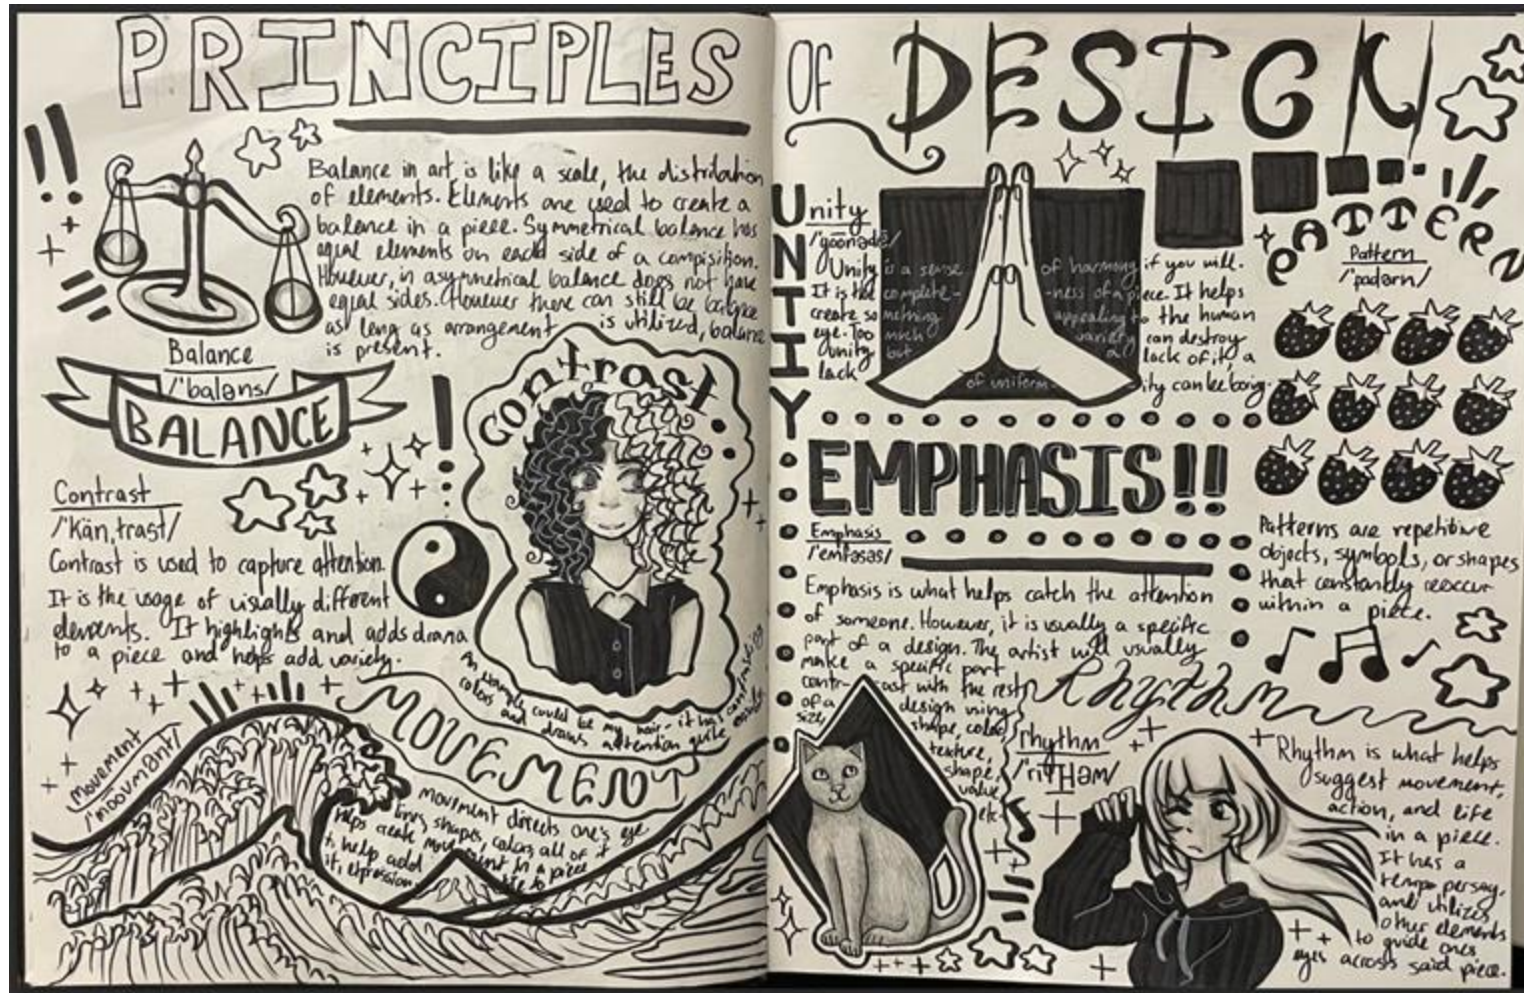 PRINCIPLES OF DESIGN
Balance in art is like a scale, the distribution
of elements. Elements are used to create a
balance in a piece. Symmetrical balance has
equal elements on each side of a compisition.
However, in asymmetrical balance does not have
equal sides. However there can still be balance
as long as arrangement is utilized, balance
is present.
Balance
/'baləns/
BALANCE
Contrast
/'Kän,trast/
Contrast is used to capture attention.
It is the usage of visually different
elements. It highlights and adds drama
to a piece and helps add variety.
contrast
An example could be my hair - it has contrasting
colors and draws attention quite
MOVEMENT
Movement
/'moovmənt/
movement directs one's eye
lines, shapes, colors, all of it
helps create movement in a piece
to help add life to
it, expression
UNITY
Unity
Unity is a sense of harmony if you will.
It is the complete- -ness of a piece. It helps
create something appealing to the human
eye. Too much variety can destroy
Unity but a lack of it, a
lack of uniform- ity can be boring.
PATTERN
Pattern
/'padərn/
Patterns are repetitive
objects, symbols, or shapes
that constantly reoccur
within a piece.
EMPHASIS!!
Emphasis
/'emfəsəs/
Emphasis is what helps catch the attention
of someone. However, it is usually a specific
part of a design. The artist will usually
make a specific part
contr- ast with the rest
of a design using
size, shape, color,
texture,
shape,
value
etc.
Rhythm
rhythm
/'riTHəm/
Rhythm is what helps
suggest movement,
action, and life
in a piece.
It has a
tempo persay,
and utilizes
other elements
to guide ones
eyes across said piece.